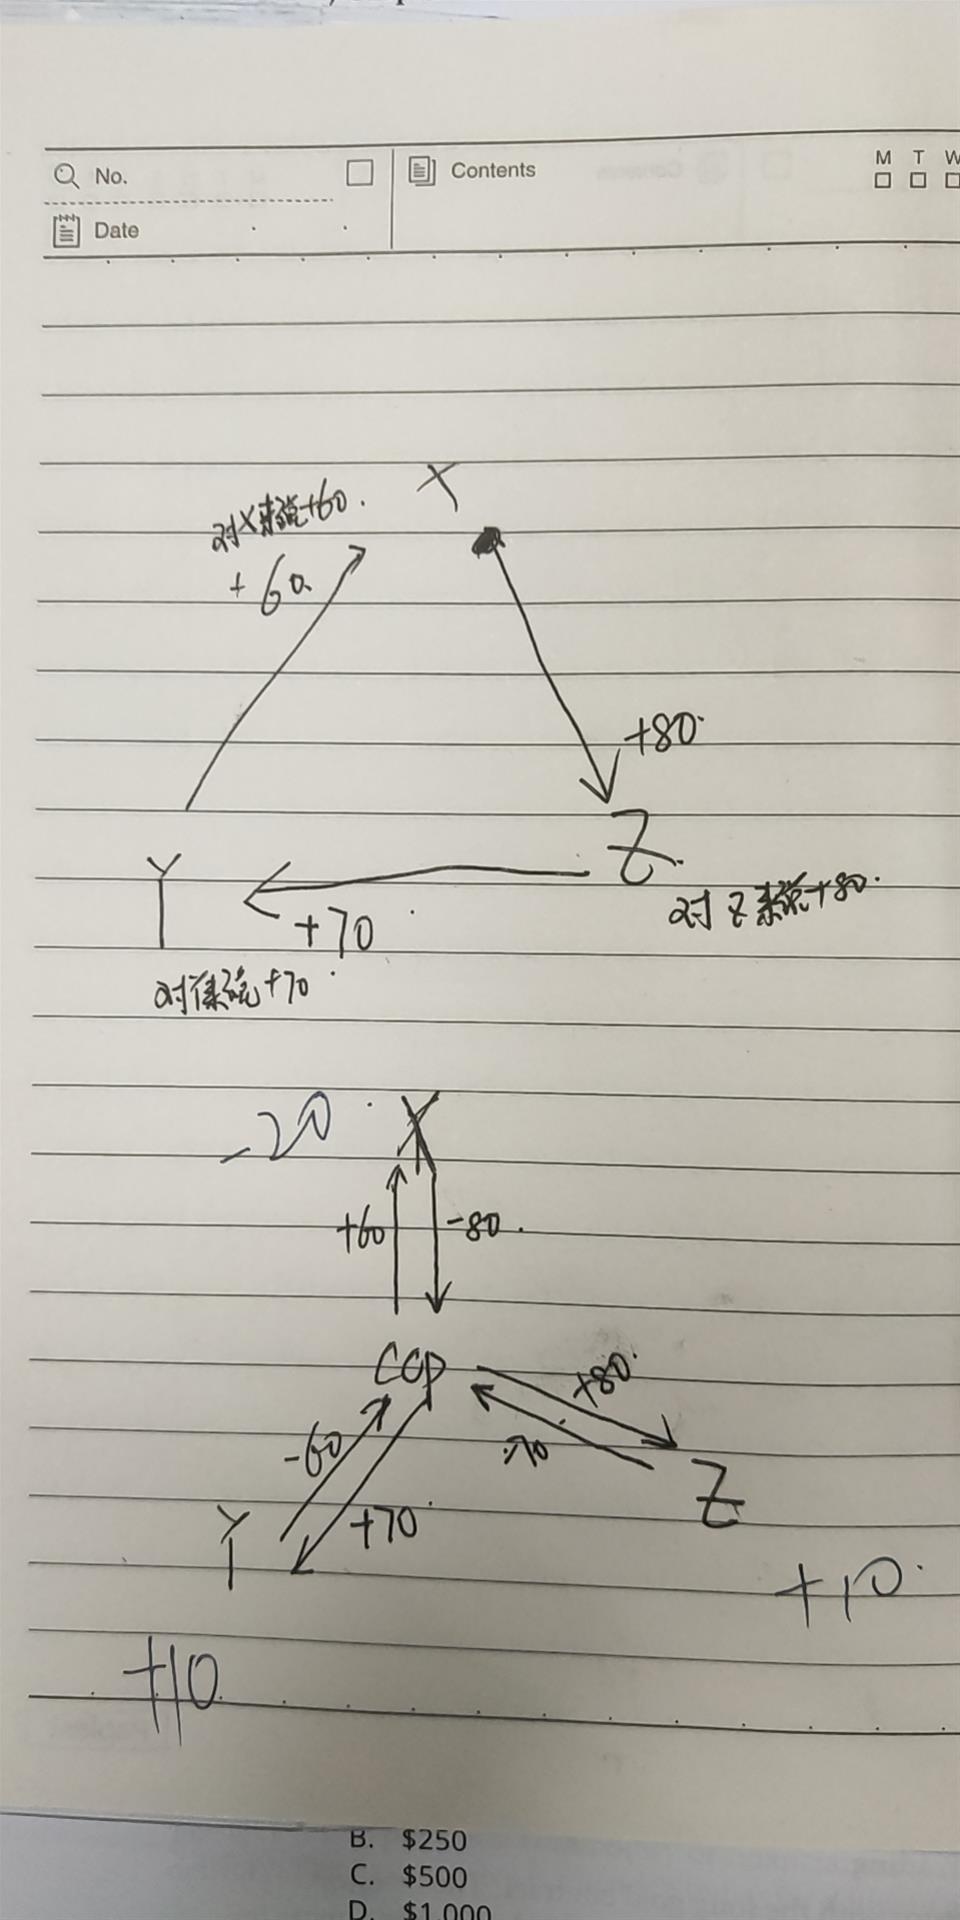 No.
Contents
M T W
Date
X
对X来说+60.
+60
+80
Z
对Z来说+80.
Y
+70
对Y来说+70
-20
X
+60
-80
CCP
+80
-70
-60
+70
Y
Z
+10
+10
B. $250
C. $500
D. $1,000